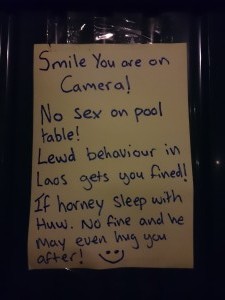 Smile You are on
Camera!
No sex on pool
table!
Lewd behaviour in
Laos gets you fined!
If horney sleep with
Huw. No fine and he
may even hug you
after!